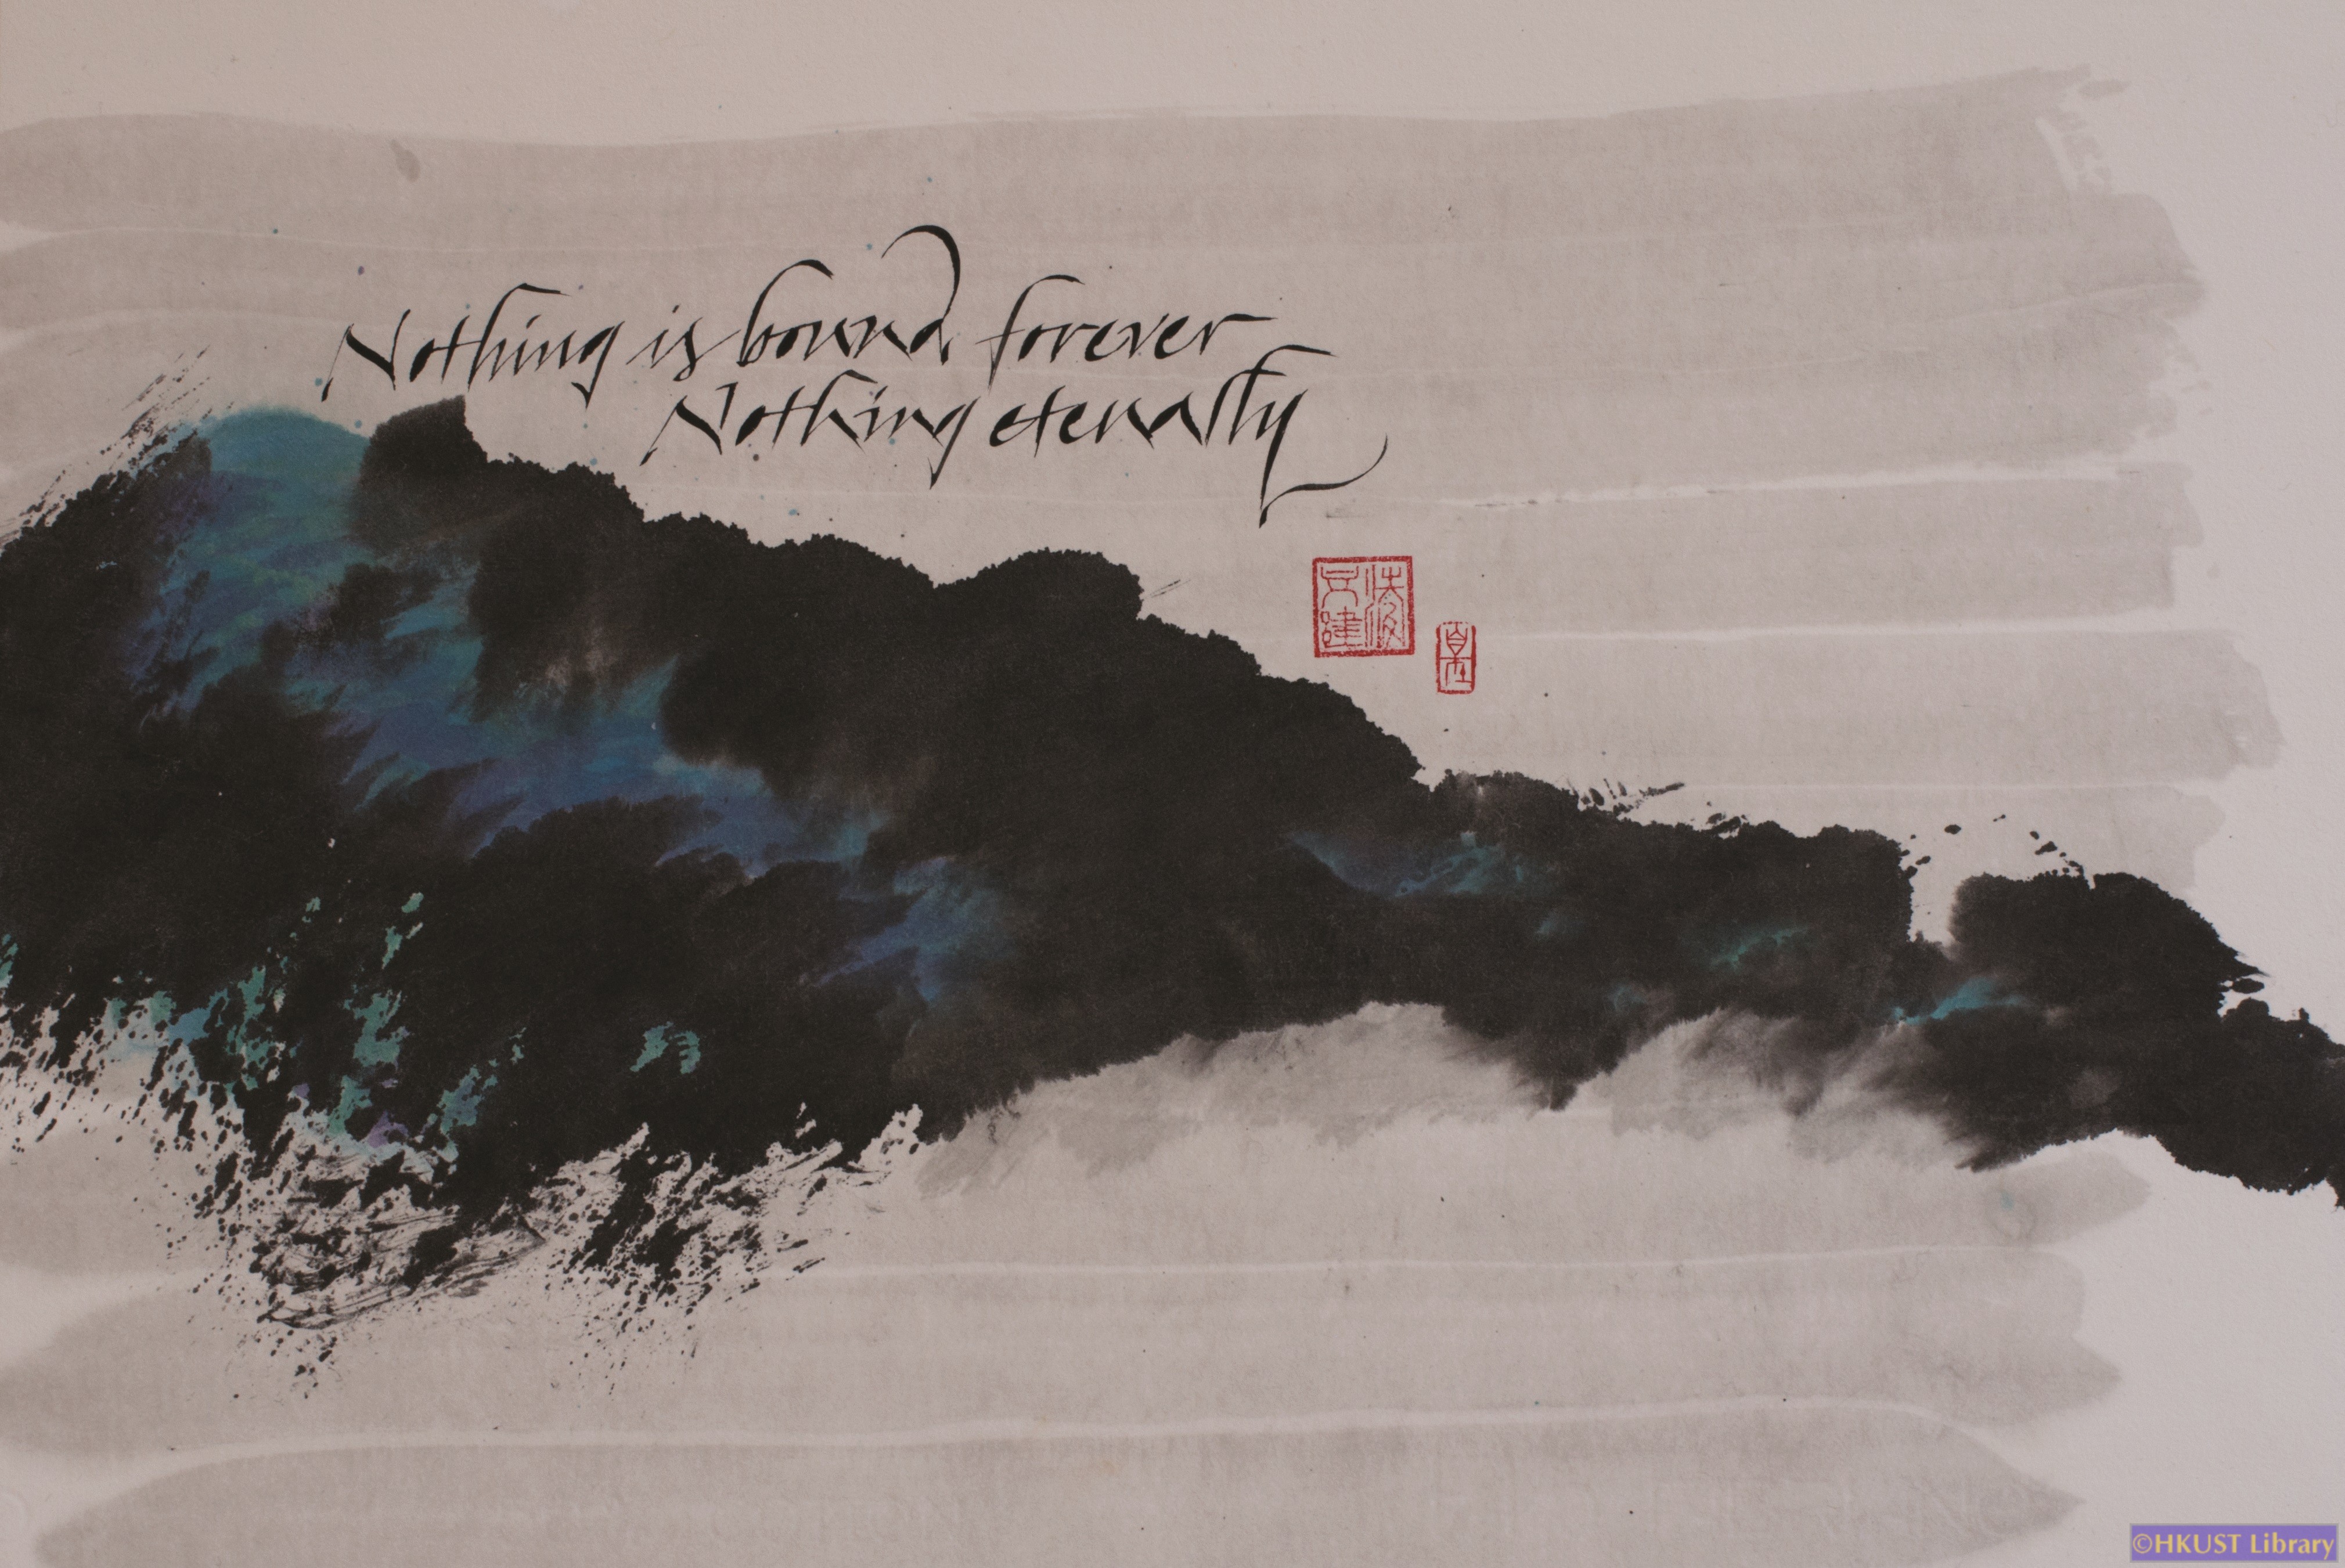 Nothing is bound forever
Nothing eternally
©HKUST Library